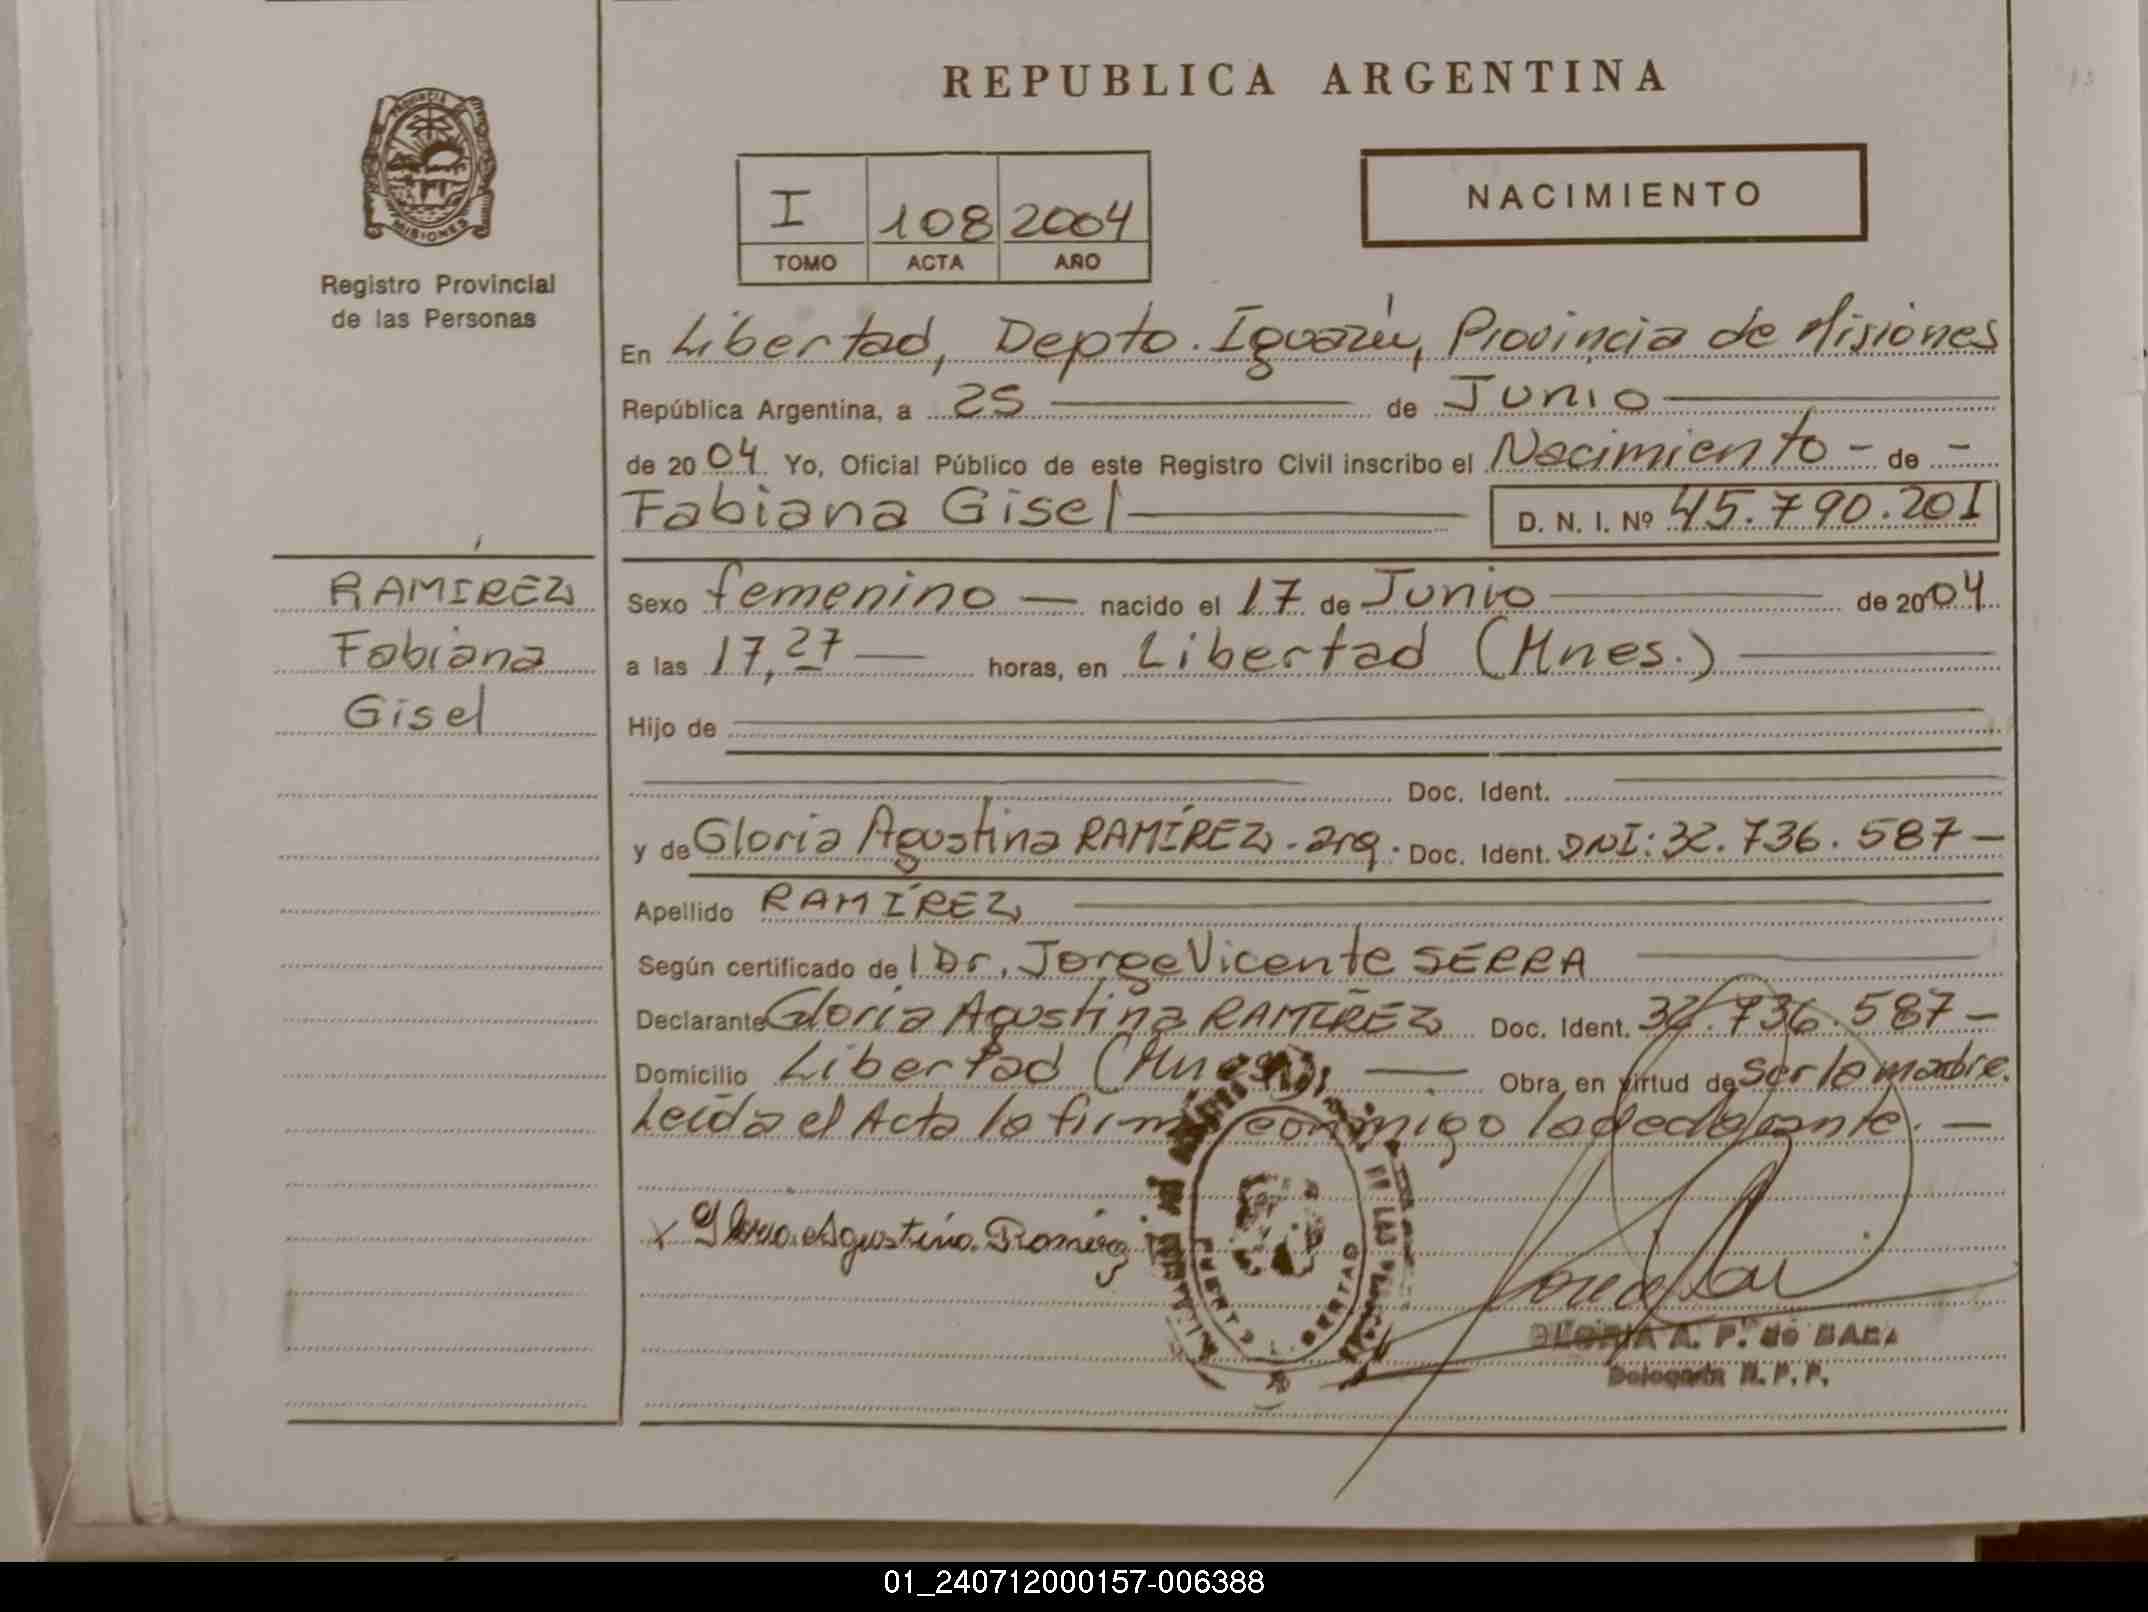 REPUBLICA ARGENTINA
PROVINCIA
MISIONES
Registro Provincial
de las Personas
I 108 2004
TOMO ACTA AÑO
NACIMIENTO
En Libertad, Depto. Iguazú, Provincia de Misiones
República Argentina, a 25 de Junio
de 2004. Yo, Oficial Público de este Registro Civil inscribo el Nacimiento - de -
Fabiana Gisel D. N. I. Nº 45.790.201
RAMÍREZ
Fabiana
Gisel
Sexo femenino — nacido el 17 de Junio de 2004
a las 17,27 — horas, en Libertad (Mnes.)
Hijo de
Doc. Ident.
y de Gloria Agustina RAMÍREZ - arg. Doc. Ident. DNI: 32.736.587 —
Apellido RAMÍREZ
Según certificado del Dr. Jorge Vicente SERRA
Declarante Gloria Agustina RAMÍREZ Doc. Ident. 32.736.587 —
Domicilio Libertad (Mnes) — Obra en virtud de ser la madre.
Leída el Acta la firma conmigo la declarante. —
x Gloria Agustina Ramirez
DE LAS
LIBERTAD
GLORIA A. P. de
Delegada R. P. P.
01_240712000157-006388